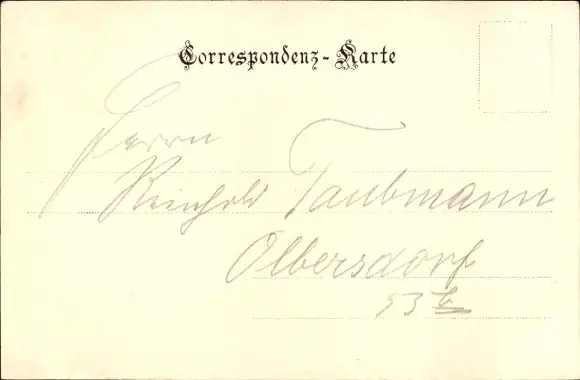 Correspondenz-Karte
Herrn
Reinhold Taubmann
Olbersdorf
53 b